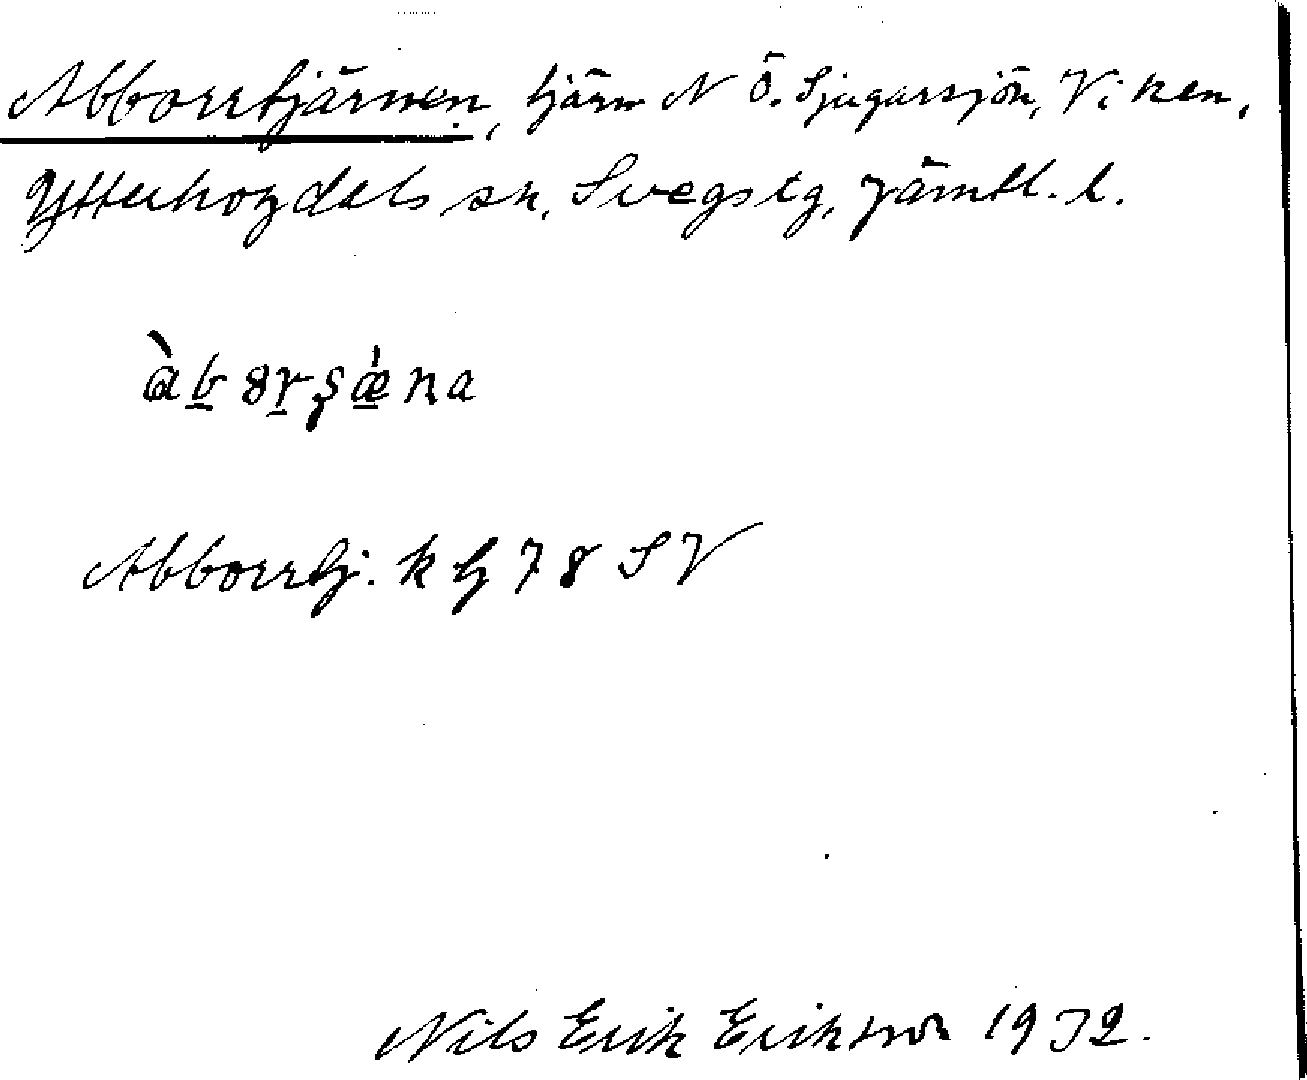 Abborrtjärnen, tjärn N Ö. Ljugarsjön, Viken,
Ytterhogdals sn, Svegs tg, Jämtl. l.
Abborrtj. k bl 78 SV
Nils Erik Erikson 1932.